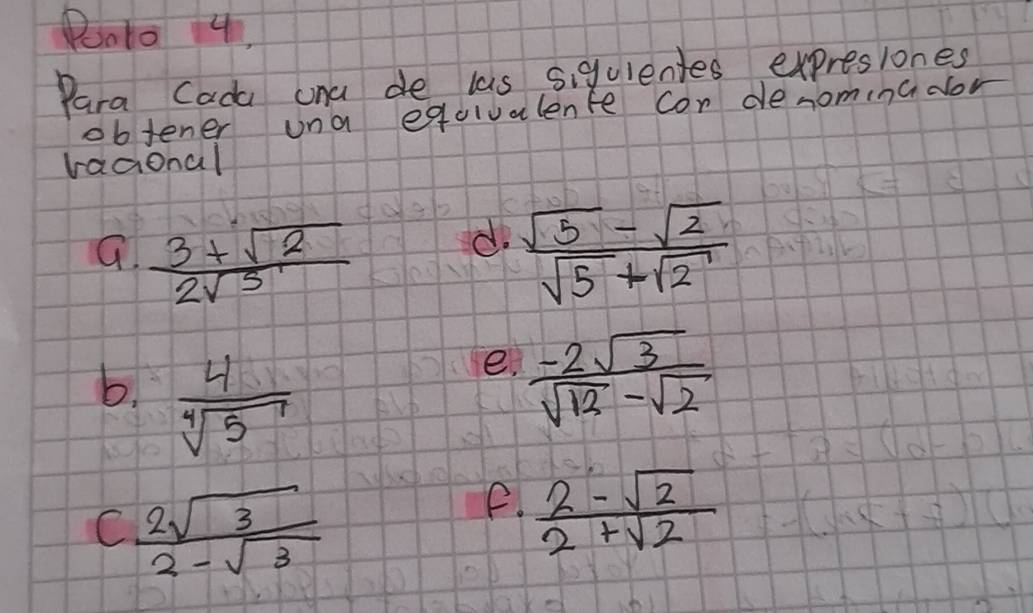 Punto 4.
Para Cada una de las siguientes expresiones
obtener una equivalente con denominador
racional
a. \frac{3+\sqrt{2}}{2\sqrt{5}}
b. \frac{4}{\sqrt[4]{5}}
c \frac{2\sqrt{3}}{2-\sqrt{3}}
d. \frac{\sqrt{5}-\sqrt{2}}{\sqrt{5}+\sqrt{2}}
e. \frac{-2\sqrt{3}}{\sqrt{12}-\sqrt{2}}
f. \frac{2-\sqrt{2}}{2+\sqrt{2}}